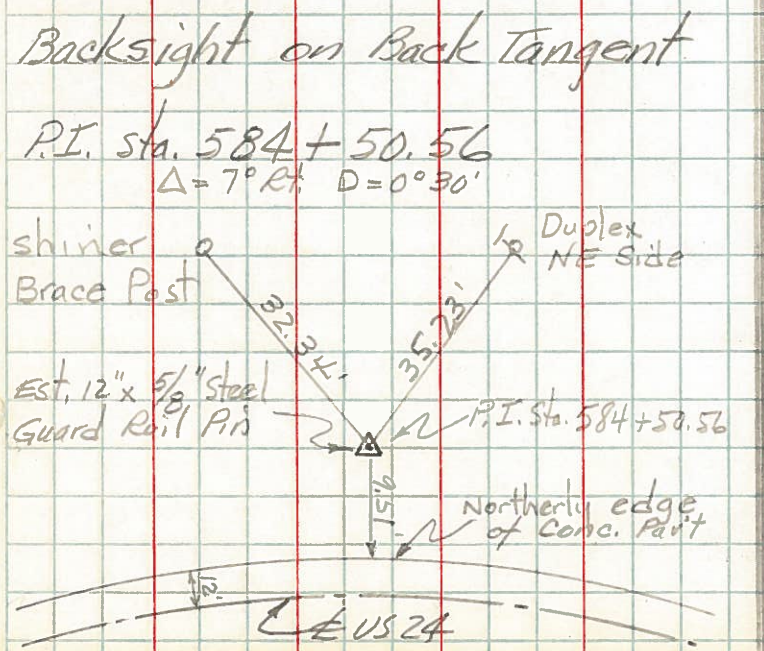 Backsight on Back Tangent
P.I. sta. 584 + 50.56
Δ = 7° Rt. D = 0°30'
shiner
Brace Post
Duplex
NE Side
32.34'
35.23'
Est. 12" x 5/8" Steel
Guard Rail Pin
P.I. Sta. 584 + 50.56
9.51
Northerly edge
of Conc. Pav't
12'
℄ US 24